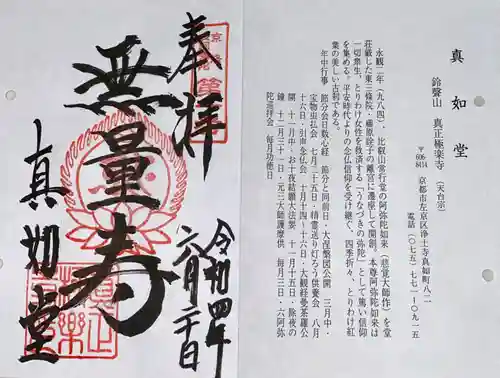 奉拝
無量寿
真如堂
令和四年
六月二十日
真如堂
鈴聲山 真正極楽寺(天台宗)
〒606-8414 京都市左京区浄土寺真如町八二
電話(〇七五)七七一―〇九一五
永観二年(九八四)、比叡山常行堂の阿弥陀如来(慈覚大師作)を堂
荘厳した東三條院・藤原詮子の離宮に遷座して開創。本尊阿弥陀如来は
一切衆生、とりわけ女性を救済する「うなづきの弥陀」として篤い信仰
を集める。平安時代よりの念仏信仰を受け継ぐ、四季折々、とりわけ紅
葉の美しい古刹である。
年中行事 節分会日数心経 節分と同前日・大涅槃図公開 三月中・
宝物虫払会 七月二十五日・精霊送り灯ろう供養会 八月
十六日・引声念仏会 十月十四〜十六日・大観経曼荼羅公
開 十一月中・お十夜結願大法要 十一月十五日・除夜の
鐘 十二月三十一日・元三大師護摩供 毎月三日・六阿弥
陀巡拝会 毎月功徳日